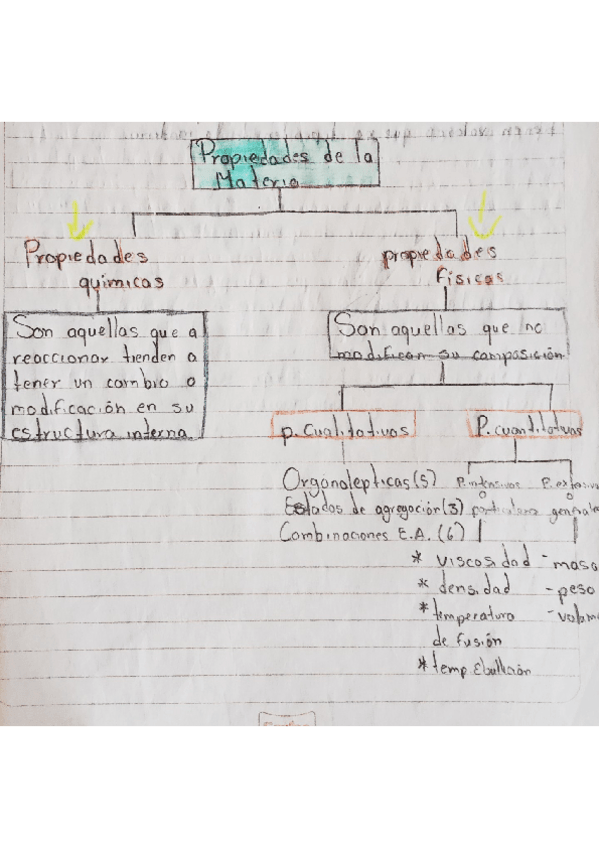 Propiedades de la
Materia
Propiedades
químicas
propiedades
Físicas
Son aquellas que a
reaccionar tienden a
tener un cambio o
modificación en su
estructura interna.
Son aquellas que no
modifican su composición
p. Cualitativas
P. cuantitativas
Organolepticas (5)
Estados de agregación (3)
Combinaciones E.A. (6)
P. intensivas
o
particulares
P. extensiva
o
generale
* viscosidad
* densidad
* temperatura
de fusión
* temp. Ebullición
- masa
- peso
- volum